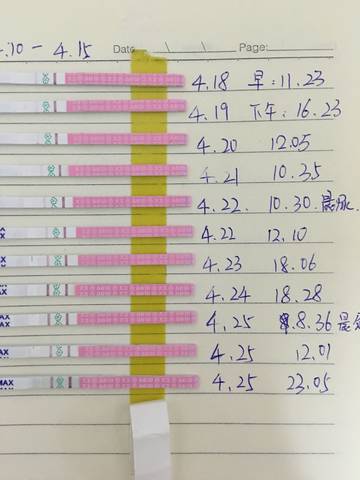 4.10 - 4.15 Date Page:
4.18 早:11.23
4.19 下午:16.23
4.20 12.05
4.21 10.35
4.22. 10.30.晨尿.
4.22 12.10
4.23 18.06
4.24 18.28
4.25 8.36 晨
4.25 12.01
MAX 4.25 23.05